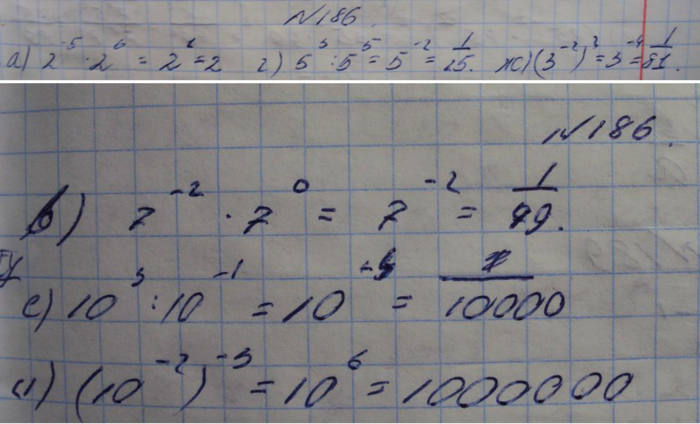 №186
а) 2⁻⁵ · 2⁶ = 2¹ = 2 г) 5³ : 5⁵ = 5⁻² = 1/25. ж) (3⁻²)² = 3⁻⁴ = 1/81.
№186.
в) 7⁻² · 7⁰ = 7⁻² = 1/49.
е) 10³ : 10⁻¹ = 10⁴ = 10000
и) (10⁻²)⁻³ = 10⁶ = 1000000